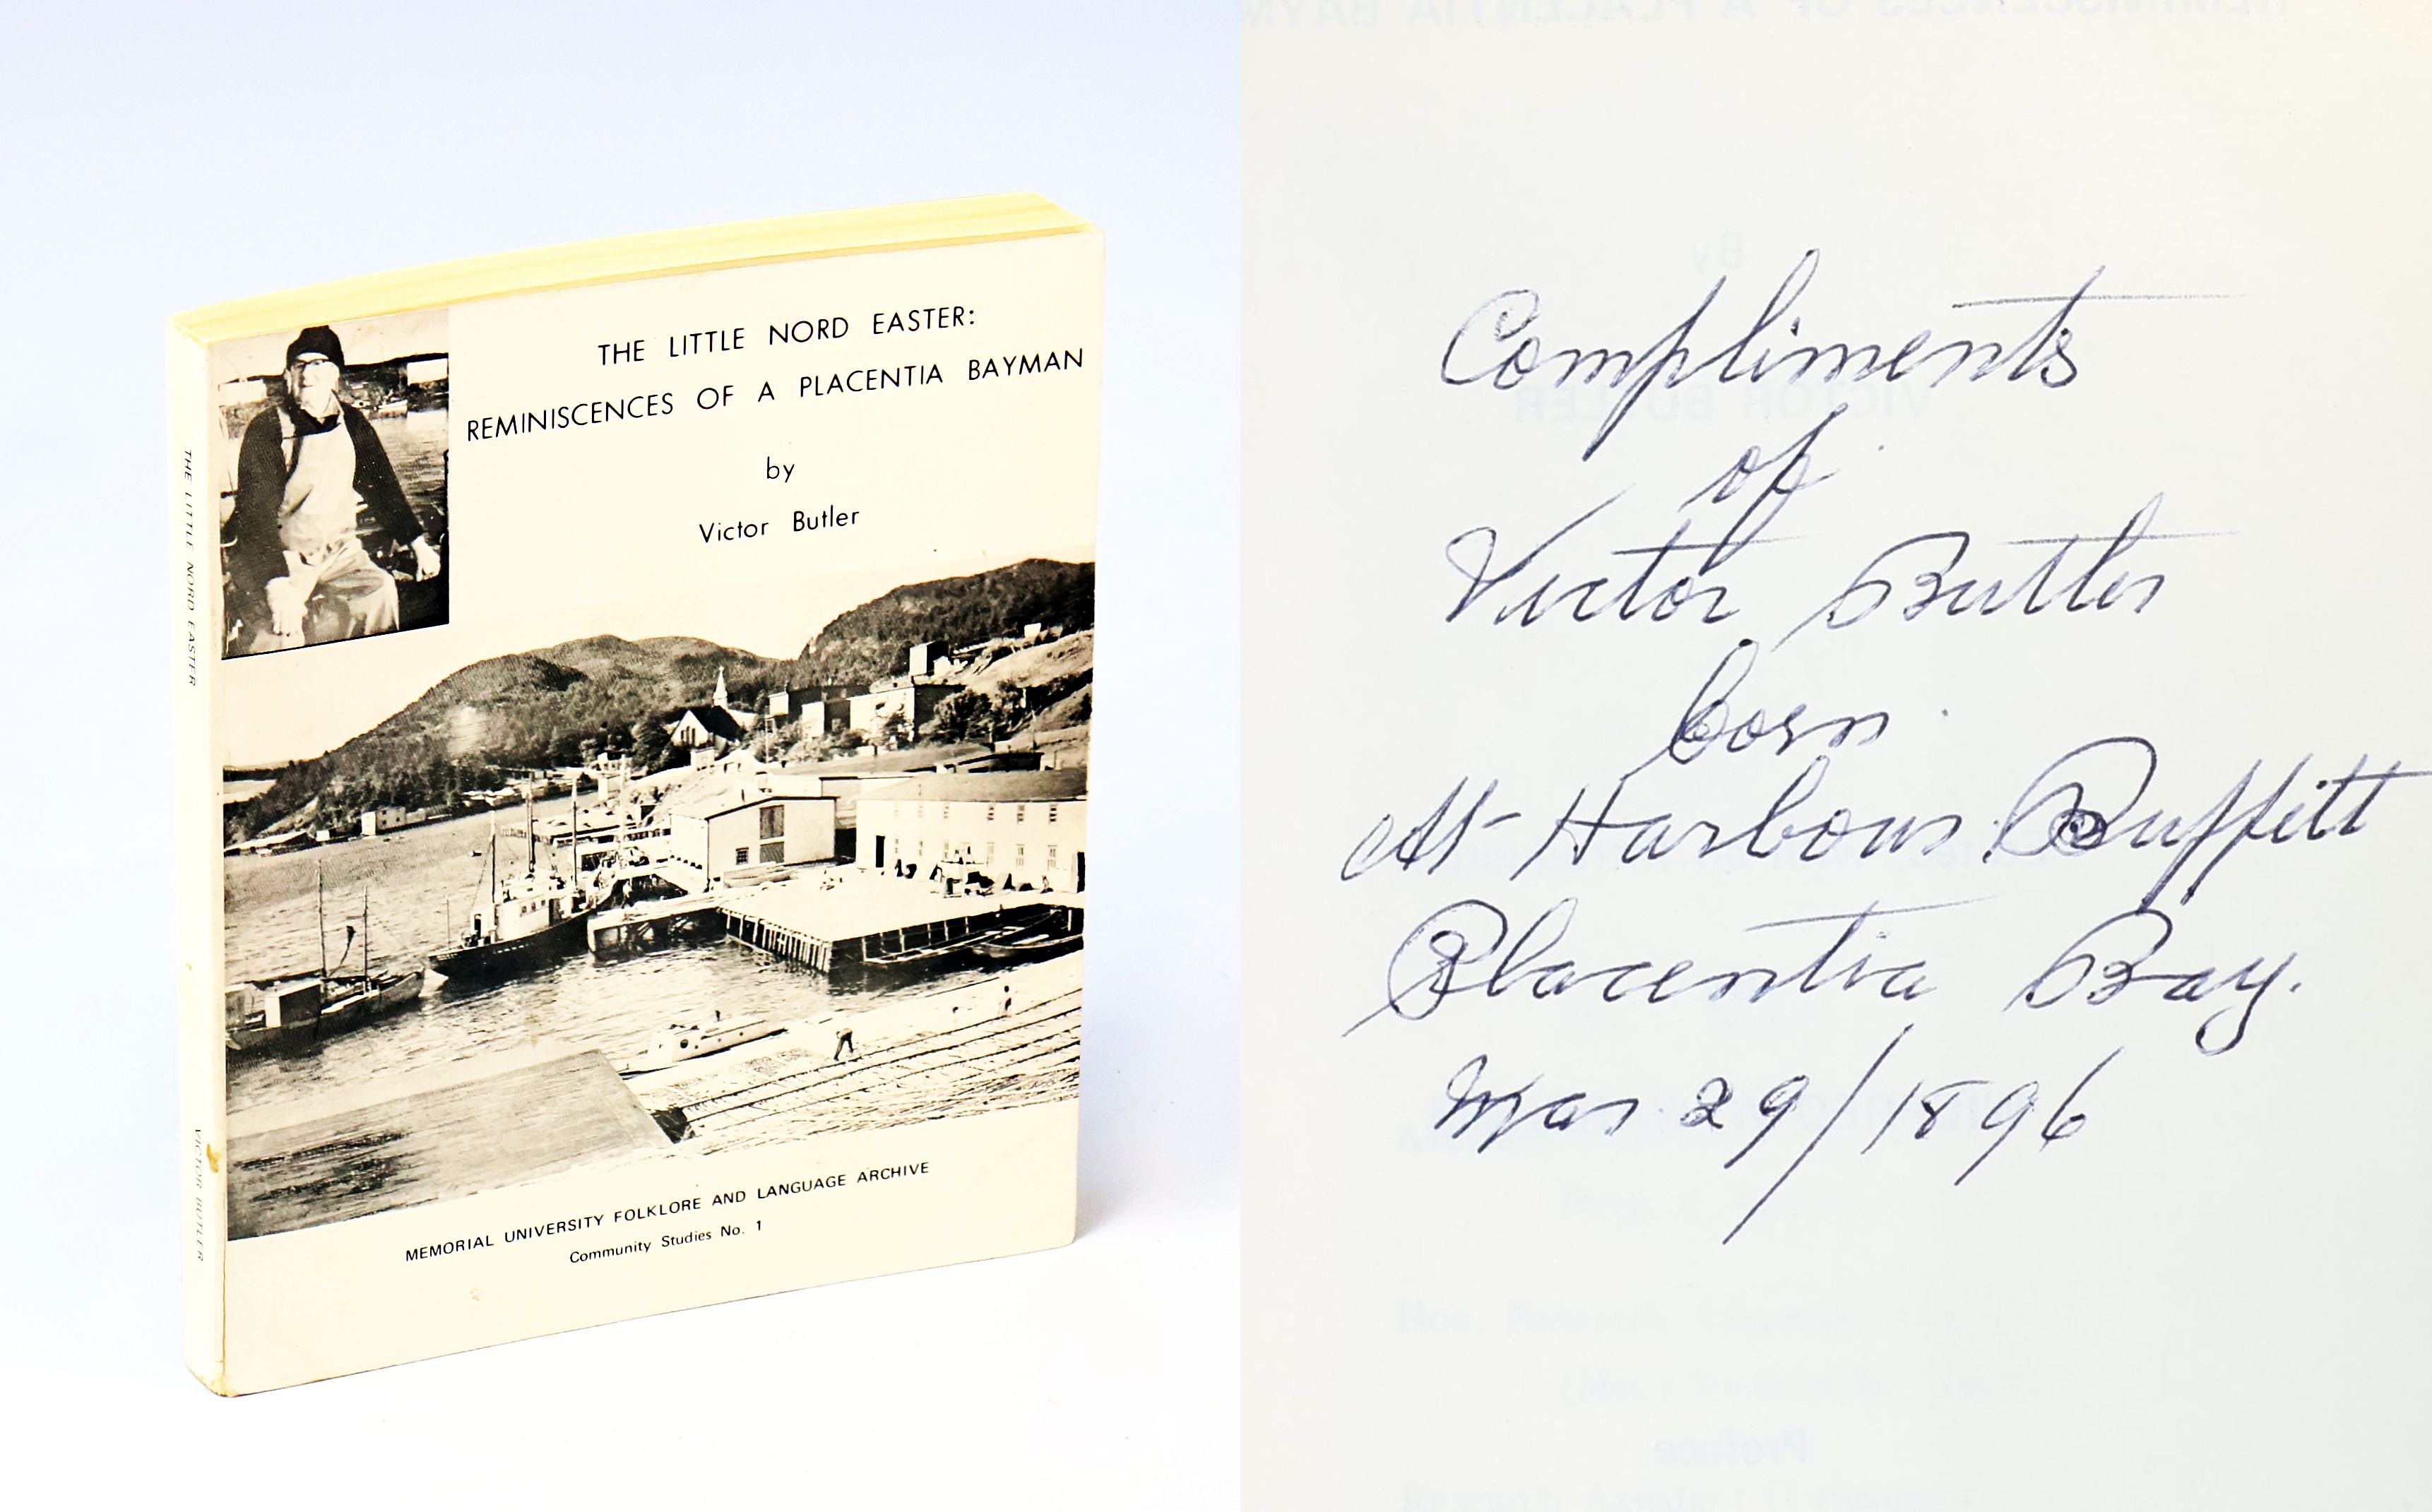 THE LITTLE NORD EASTER:
REMINISCENCES OF A PLACENTIA BAYMAN
by
Victor Butler
MEMORIAL UNIVERSITY FOLKLORE AND LANGUAGE ARCHIVE
Community Studies No. 1
THE LITTLE NORD EASTER
VICTOR BUTLER
Compliments
of
Victor Butler
born
At Harbour Buffett
Placentia Bay.
Mar 29/1896
REMINISCENCES OF A PLACENTIA BAYM
By
VICTOR BUTLER
Preface